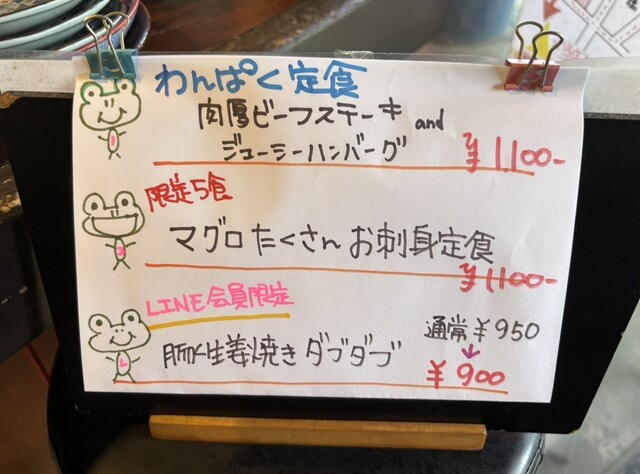 わんぱく定食
肉厚ビーフステーキ and
ジューシーハンバーグ ¥1100-
限定5食
マグロたくさんお刺身定食
¥1100-
LINE会員限定
通常¥950
生姜焼きダブダブ
¥900